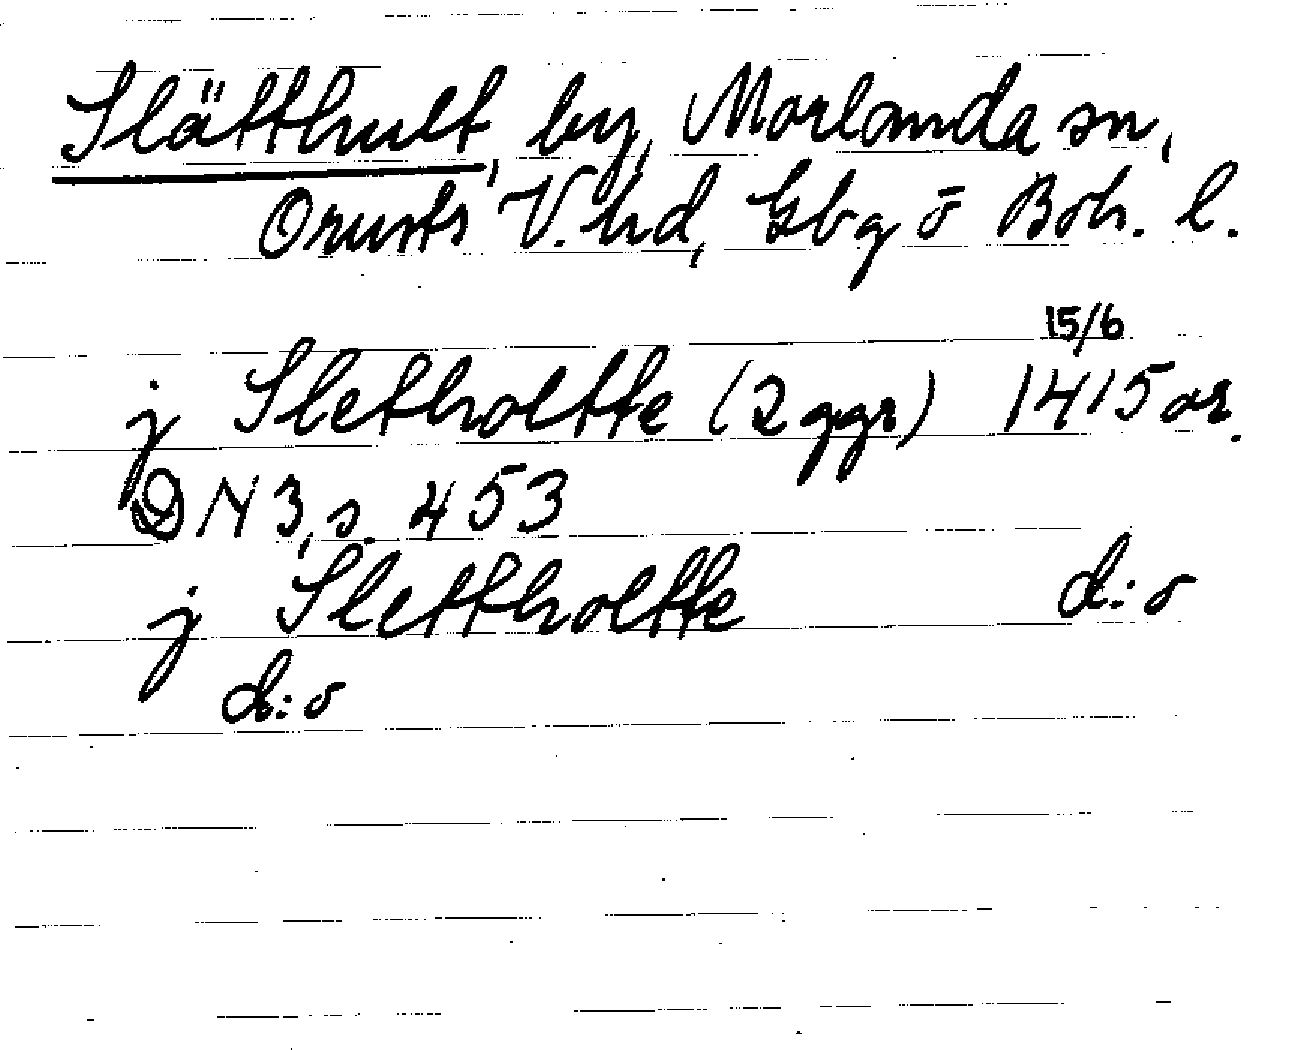 Slätthult, by, Morlanda sn,
Orusts V. hd, Gbg o Boh. l.
15/6
j Sletholtte (2 ggr) 1415 or.
DN 3, s. 453
j Slettholtte d:o
d:o